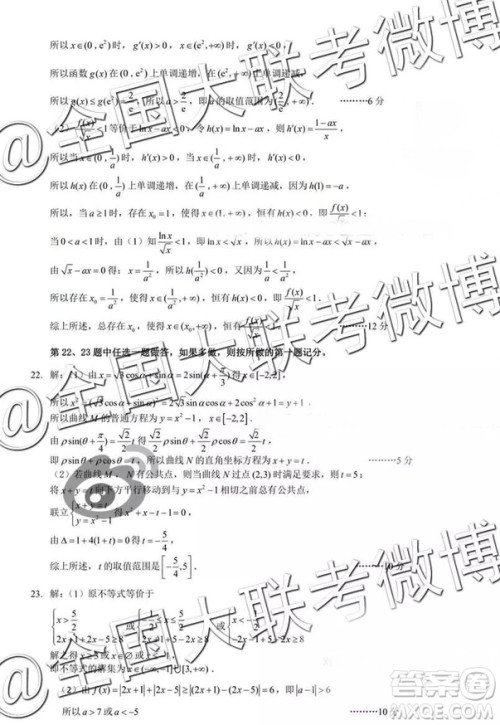 所以 x∈(0,e²)时, g′(x)>0, x∈(e²,+∞)时, g′(x)<0.
所以函数 g(x) 在 (0,e²) 上单调递增, 在 (e²,+∞) 上单调递减,
所以 g(x)≤g(e²)=2/e, 所以 a>2/e, 即 a 的取值范围为 ………6分
f(x)/√x<1 等价于 ln x−ax<√x, 令 h(x)=ln x−ax, 则 h′(x)=(1−ax)/x
所以当 x∈(0,1/a) 时, h′(x)>0, 当 x∈(1/a,+∞) 时, h′(x)<0.
所以 h(x) 在 (0,1/a) 上单调递增, 在 (1/a,+∞) 上单调递减, 因为 h(1)=−a,
所以, 当 a≥1 时, 存在 x₀=1, 使得 x∈(1,+∞), 恒有 f(x)/√x<1;
当 0<a<1 时, 由(1)知 ln x/√x<1, 即 ln x<√x, 所以 h(x)=ln x−ax<√x−ax,
由 √x−ax=0 得: √x=1/a, x=1/a², 所以, 又因为
所以存在 x₀=1/a², 使得 x∈(1/a²,+∞), 恒有 f(x)/√x<1;
综上所述, 总存在 x₀ ………12分
第22、23题中任选一题做答, 如果多做, 则按所做的第一题记分。
22. 解: (1)由 x=√3cosα+sinα=2sin 得 x∈[−2,2],
x²=(√3cosα+sinα)²=2√3sinαcosα
所以曲线 M 的普通方程为 y=x²−1, x∈[−2,2].
由 ρsin(θ+π/4)=√2/2 t 得 √2/2 ρsinθ+√2/2 ρcosθ=√2/2 t,
即 ρsinθ+ρcosθ=t, 所以曲线 N 的直角坐标方程为 x+y=t. ………5分
(2)若曲线 M、N 有公共点, 则当直线 N 过点 (2,3) 时满足要求, 则 t=5;
将 x+y=t 向下方平行移动到与 y=x²−1 相切之前总有公共点,
联立 {x+y=t, y=x²−1 得: x²+x−1−t=0,
由 Δ=1+4(1+t)=0, 得 t=−5/4
综上所述, t 的取值范围是 [−5/4,5]. ………10分
23. 解: (1)原不等式等价于
{x>5/2, 2x+1+2x−5≥8 或
解之得
即不等式的解集为 ∪[3,+∞).
(2)由 f(x)=|2x+1|+|2x−5|≥|2x+1−(2x−5)|=6, 即 |a−1|>6
所以 a>7 或 a<−5 ………10分
@全国大联考微博
@全国大联考微博
@全国大联考微博
答案圈